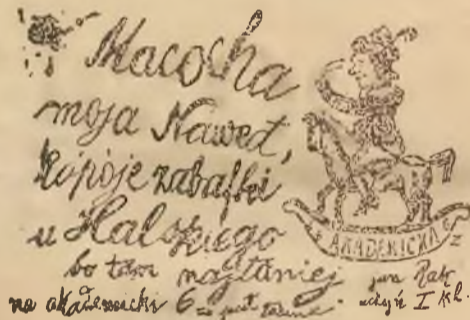 Macocha
moja Nawed,
kópóje zabafki
u Halskiego
bo tam najtaniej
na akademicki 6
AKADEMICKA
I kl.